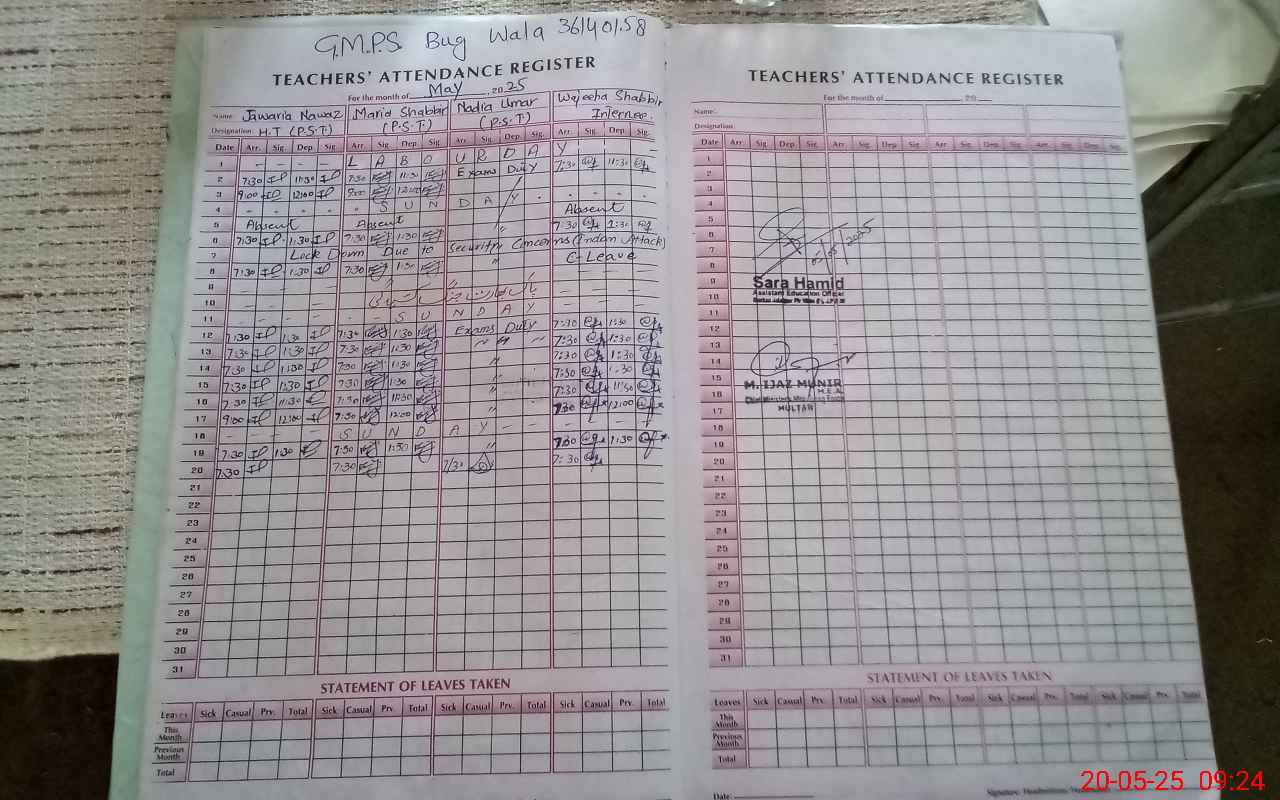 G.M.P.S. Bug Wala 36140158
TEACHERS' ATTENDANCE REGISTER
For the month of May 2025
Name: Jawaria Nawaz Maria Shabbir Nadia Umar Wajeeha Shabbir
Designation: H.T (P.S.T) (P.S.T) (P.S.T) Internee.
Date Arr. Sig. Dep. Sig. Arr. Sig. Dep. Sig. Arr. Sig. Dep. Sig. Arr. Sig. Dep. Sig.
1 - - - - L A B O U R D A Y
2 7:30 11:30 7:30 11:30 Exams Duty 7:30 11:30
3 9:00 12:00 9:00 12:00
4 S U N D A Y
5 Absent Absent Absent
6 7:30 1:30 7:30 1:30 " 7:30 1:30
7 Lock Down Due to Security Concerns (Indian Attack)
8 7:30 1:30 7:30 1:30 " C-Leave
9
10
11 S U N D A Y
12 7:30 1:30 7:30 1:30 Exams Duty 7:30 1:30
13 7:30 1:30 7:30 11:30 " " 7:30 1:30
14 7:30 11:30 7:30 11:30 " 7:30 1:30
15 7:30 1:30 7:30 1:30 " 7:30 1:30
16 7:30 11:30 7:30 11:30 " 7:30 11:30
17 9:00 12:00 7:30 12:00 " 7:30 12:00
18 - - - S U N D A Y - -
19 7:30 1:30 7:30 1:30 " 7:30 1:30
20 7:30 7:30 7:30 7:30
21
22
23
24
25
26
27
28
29
30
31
STATEMENT OF LEAVES TAKEN
Leaves Sick Casual Prv. Total Sick Casual Prv. Total Sick Casual Prv. Total Sick Casual Prv. Total
This Month
Previous Month
Total
TEACHERS' ATTENDANCE REGISTER
For the month of 20
Name:
Designation:
Date Arr. Sig. Dep. Sig. Arr. Sig. Dep. Sig. Arr. Sig. Dep. Sig. Arr. Sig. Dep. Sig.
1
2
3
4
5
6
7
8
9 Sara Hamid
Assistant Education Officer
10
11
12
13
14
15
M. IJAZ MUNIR
16 M.E.A.
17 MULTAN
18
19
20
21
22
23
24
25
26
27
28
29
30
31
STATEMENT OF LEAVES TAKEN
Leaves Sick Casual Prv. Total Sick Casual Prv. Total Sick Casual Prv. Total Sick Casual Prv. Total
This Month
Previous Month
Total
Date:
20-05-25 09:24